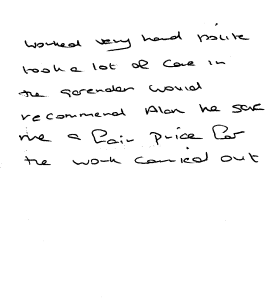 worked very hard polite
took a lot of care in
the garenden would
recommend Alan he gave
me a fair price for
the work carried out